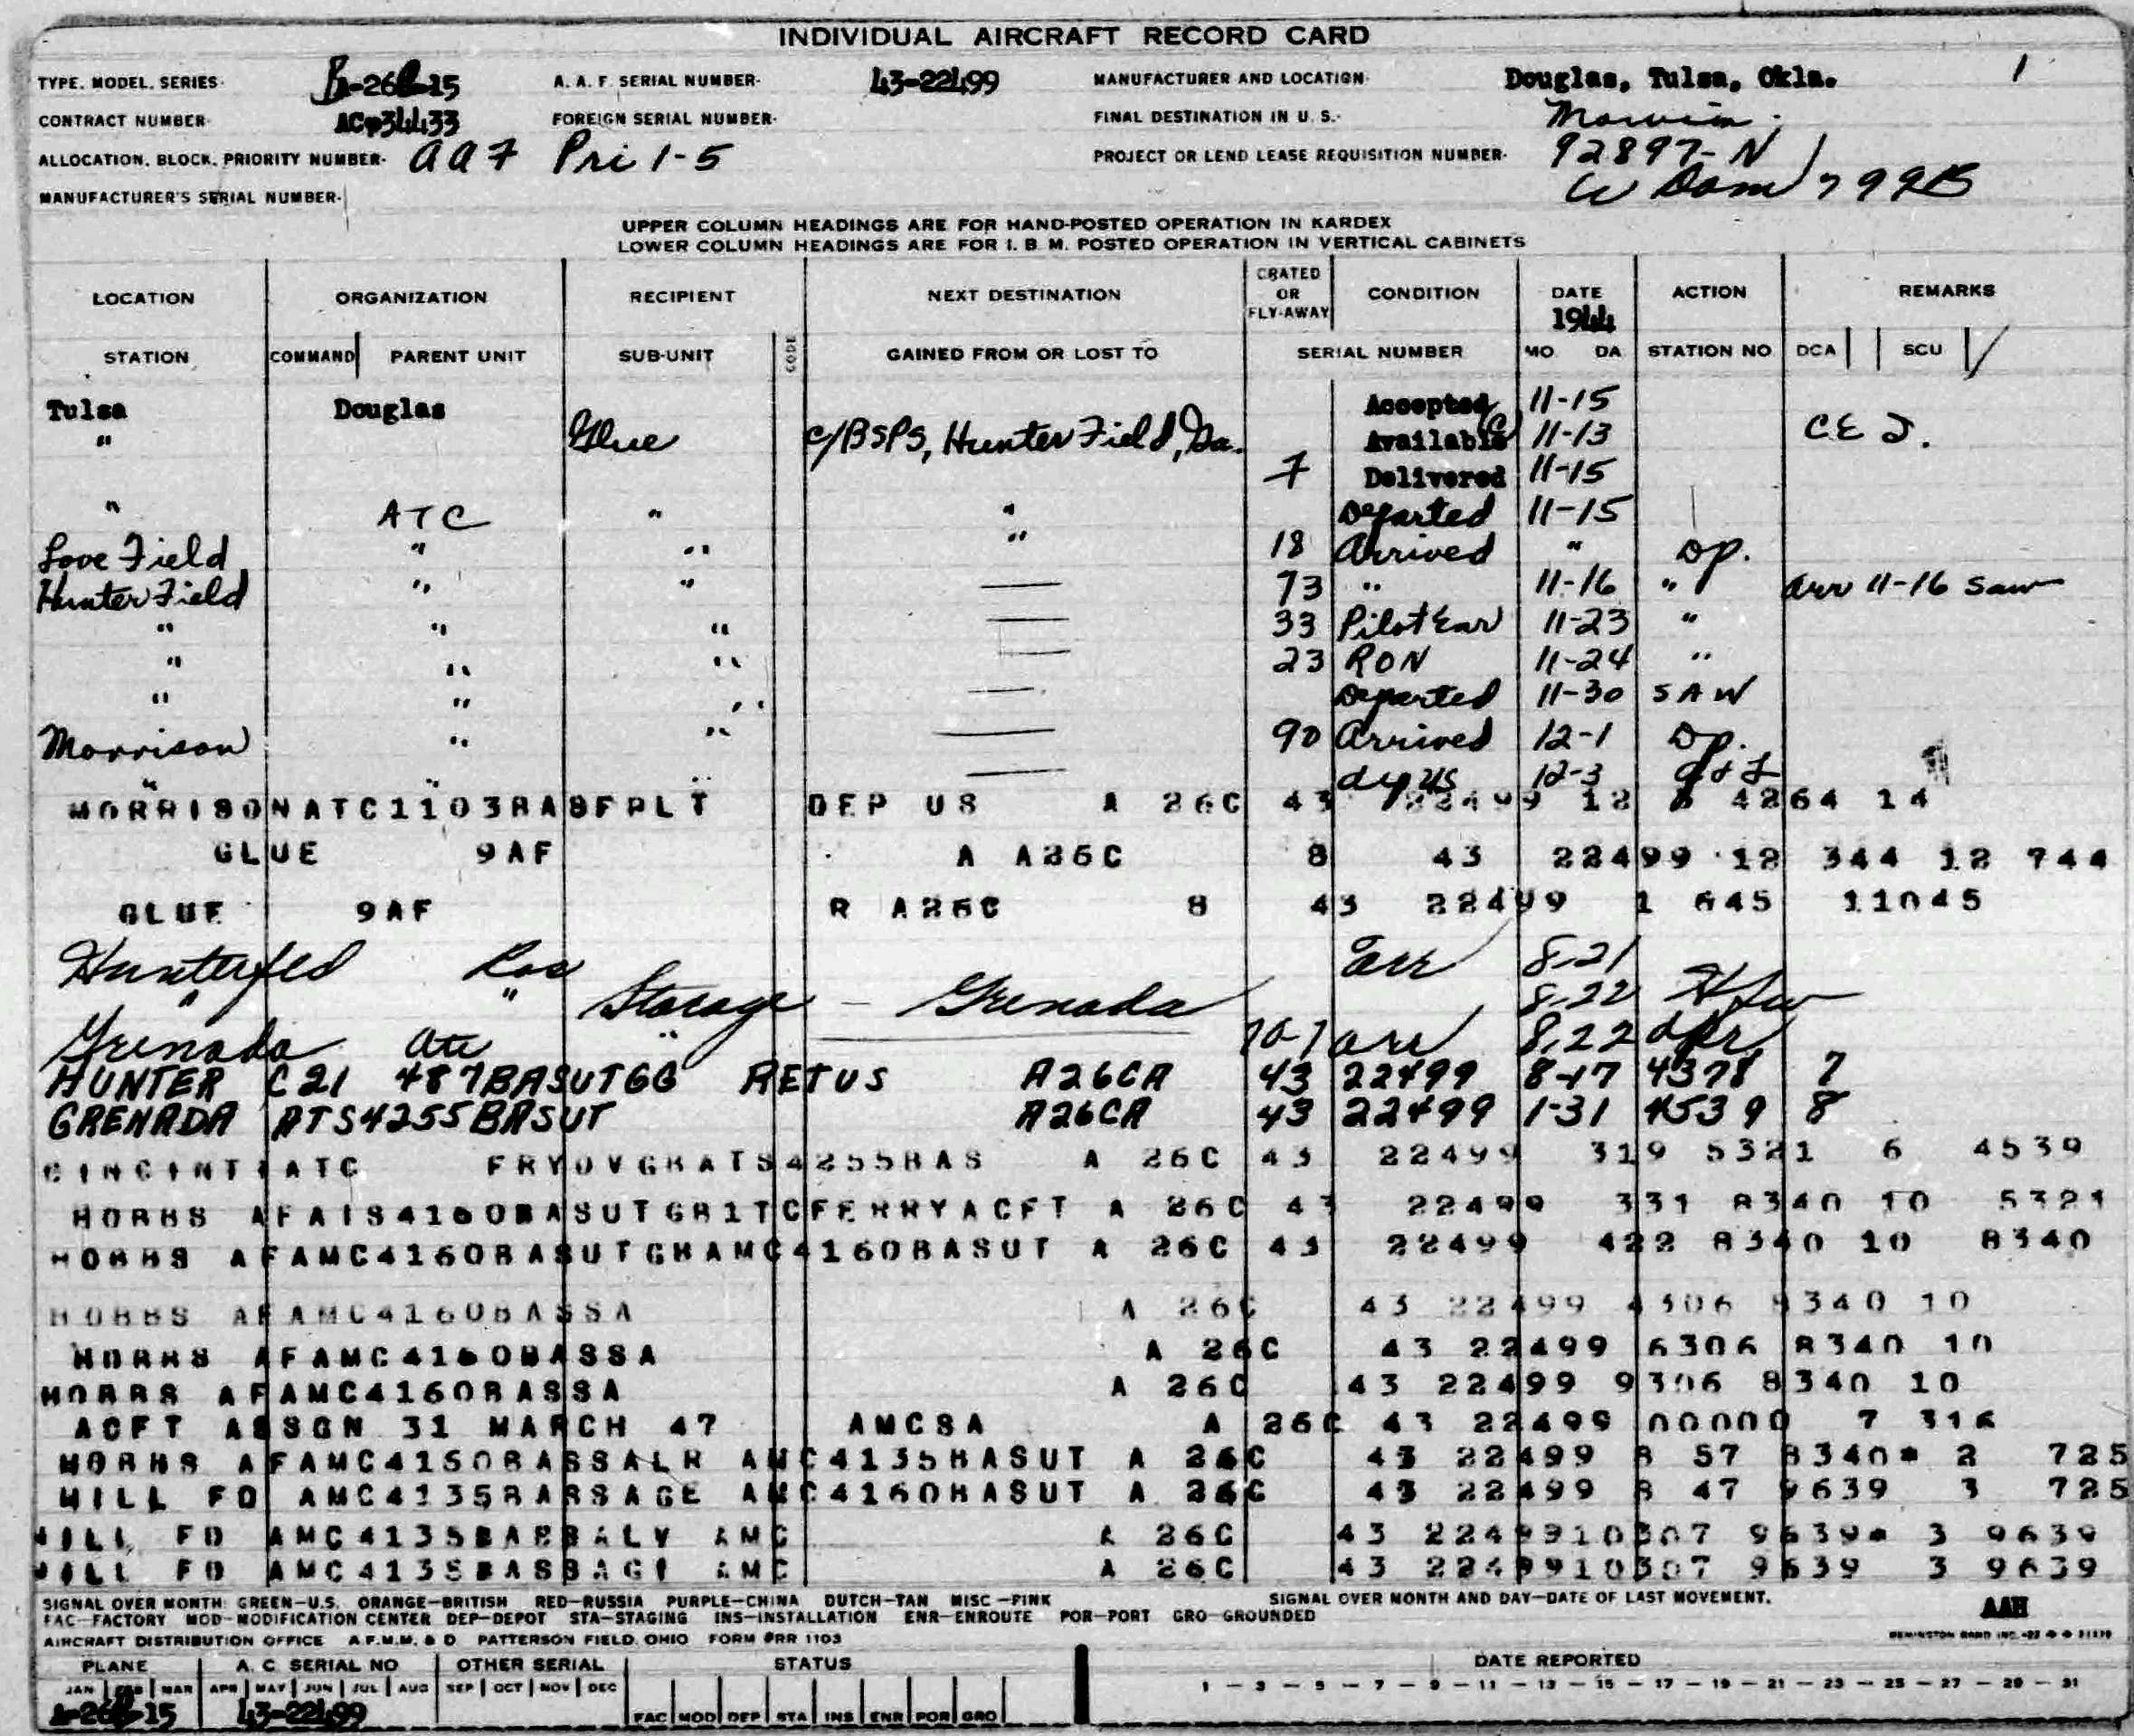 INDIVIDUAL AIRCRAFT RECORD CARD
TYPE, MODEL, SERIES- A-26C-15 A. A. F. SERIAL NUMBER- 43-22499 MANUFACTURER AND LOCATION- Douglas, Tulsa, Okla. 1
CONTRACT NUMBER- AC-34433 FOREIGN SERIAL NUMBER- FINAL DESTINATION IN U. S.-
ALLOCATION, BLOCK, PRIORITY NUMBER- aa7 Pri 1-5 PROJECT OR LEND LEASE REQUISITION NUMBER- 92897-N
MANUFACTURER'S SERIAL NUMBER-
UPPER COLUMN HEADINGS ARE FOR HAND-POSTED OPERATION IN KARDEX
LOWER COLUMN HEADINGS ARE FOR I. B. M. POSTED OPERATION IN VERTICAL CABINETS
LOCATION ORGANIZATION RECIPIENT NEXT DESTINATION CRATED OR FLY-AWAY CONDITION DATE 1944 ACTION REMARKS
STATION COMMAND PARENT UNIT SUB-UNIT CODE GAINED FROM OR LOST TO SERIAL NUMBER MO. DA. STATION NO. DCA SCU
Tulsa Douglas Accepted 11-15
" Glue c/BSPS, Hunter Field, Ga. Available 11-13 CE J.
7 Delivered 11-15
" ATC " " Departed 11-15
Love Field " " " 18 Arrived " Op.
Hunter Field " " — 73 " 11-16 " arr 11-16 Saw
" " " — 33 Pilot Ear 11-23 "
" " " — 23 RON 11-24 "
" " " — Departed 11-30 SAW
Morrison " " — 90 Arrived 12-1 Op.
" " " — dep US 12-3
MORRISON ATC1103BASFPLT DEP US A 26C 43 22499 12 4264 14
GLUE 9AF A A26C 8 43 22499 12 344 12 744
GLUE 9AF R A26C 8 43 22499 1 645 11045
Hunterfld arr 8-21
" " Storage — Grenada 8-22
Grenada " arr 8,22
HUNTER C21 487BASUTGG RETUS A26CA 43 22499 8-17 4378 7
GRENADA ATS4255BASUT A26CA 43 22499 1-31 4539 8
CINCINTI ATC FRYDVGRATS4255BAS A 26C 43 22499 319 5321 6 4539
HOBBS AFAIS4160BASUTGR1TCFERRYACFT A 26C 43 22499 331 8340 10 5321
HOBBS AFAMC4160BASUTGRAMC4160BASUT A 26C 43 22499 422 8340 10 8340
HOBBS AFAMC4160BASSA A 26C 43 22499 4306 8340 10
HOBBS AFAMC4160BASSA A 26C 43 22499 6306 8340 10
HOBBS AFAMC4160BASSA A 26C 43 22499 9306 8340 10
ACFT ASSGN 31 MARCH 47 AMCSA A 26C 43 22499 00000 7 316
HOBBS AFAMC4160BASSALR AMC4135BASUT A 26C 43 22499 8 57 8340* 2 725
HILL FD AMC4135BASSAGE AMC4160BASUT A 26C 43 22499 8 47 9639 3 725
HILL FD AMC4135BASSALV AMC A 26C 43 2249910307 9639* 3 9639
HILL FD AMC4135BASSAGI AMC A 26C 43 2249910307 9639 3 9639
SIGNAL OVER MONTH: GREEN—U.S. ORANGE—BRITISH RED—RUSSIA PURPLE—CHINA DUTCH—TAN MISC—PINK SIGNAL OVER MONTH AND DAY—DATE OF LAST MOVEMENT.
FAC—FACTORY MOD—MODIFICATION CENTER DEP—DEPOT STA—STAGING INS—INSTALLATION ENR—ENROUTE POR—PORT GRO—GROUNDED AAH
AIRCRAFT DISTRIBUTION OFFICE A.F.M.M. & D. PATTERSON FIELD, OHIO FORM #RR 1103 REMINGTON RAND INC.
PLANE A. C. SERIAL NO OTHER SERIAL STATUS DATE REPORTED
JAN FEB MAR APR MAY JUN JUL AUG SEP OCT NOV DEC 1 — 3 — 5 — 7 — 9 — 11 — 13 — 15 — 17 — 19 — 21 — 23 — 25 — 27 — 29 — 31
A-26C-15 43-22499 FAC MOD DEP STA INS ENR POR GRO